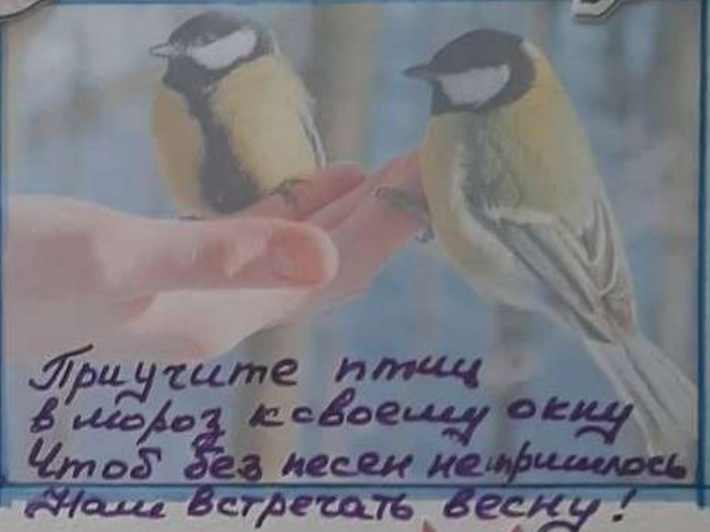 Приучите птиц
в мороз к своему окну
Чтоб без песен не пришлось
Нам встречать весну!